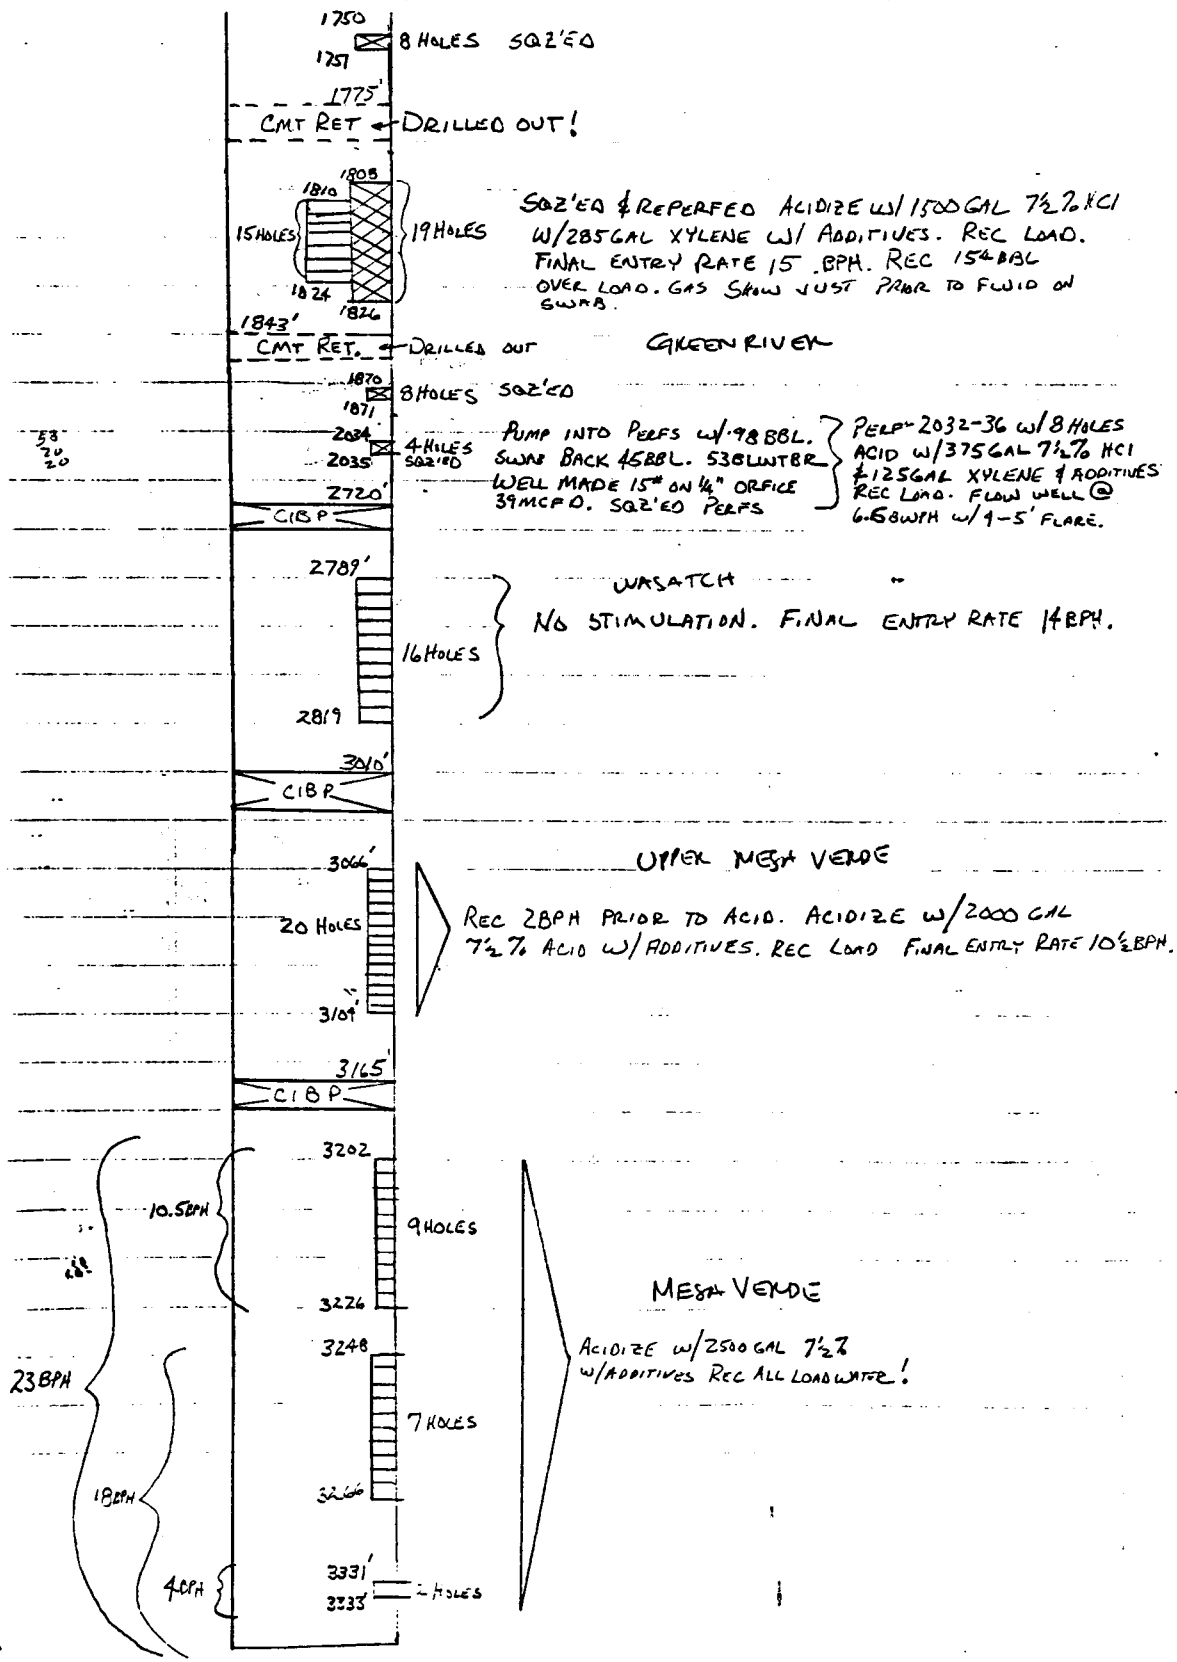 1750
8 HOLES SQZ'ED
1751
1775'
CMT RET DRILLED OUT!
1805
1810
15 HOLES
19 HOLES
1824
1826
SQZ'ED & REPERFED ACIDIZE W/1500 GAL 7½% HCl
W/285 GAL XYLENE W/ ADDITIVES. REC LOAD.
FINAL ENTRY RATE 15 BPH. REC 154 BBL
OVER LOAD. GAS SHOW JUST PRIOR TO FLUID ON
SWAB.
1843'
CMT RET. DRILLED OUT
GREEN RIVER
1870
8 HOLES SQZ'ED
1871
2034
4 HOLES
SQZ'ED
2035
58
20
20
PUMP INTO PERFS W/ 98 BBL.
SWAB BACK 45 BBL. 53 BLWTBR
WELL MADE 15# ON ¼" ORFICE
39 MCFD. SQZ'ED PERFS
PERF 2032-36 W/ 8 HOLES
ACID W/375 GAL 7½% HCl
& 125 GAL XYLENE & ADDITIVES
REC LOAD. FLOW WELL @
6.5 BWPH W/ 4-5' FLARE.
2720'
CIBP
2789'
16 HOLES
2819
WASATCH
NO STIMULATION. FINAL ENTRY RATE 14 BPH.
3010'
CIBP
UPPER MESA VERDE
3066'
20 HOLES
3104'
REC 2BPH PRIOR TO ACID. ACIDIZE W/2000 GAL
7½% ACID W/ADDITIVES. REC LOAD FINAL ENTRY RATE 10½ BPH.
3165'
CIBP
3202
10.5BPH
9 HOLES
3226
MESA VERDE
ACIDIZE W/2500 GAL 7½%
W/ADDITIVES REC ALL LOAD WATER!
3248
23 BPH
7 HOLES
3266
18BPH
3331'
4BPH
2 HOLES
3333'